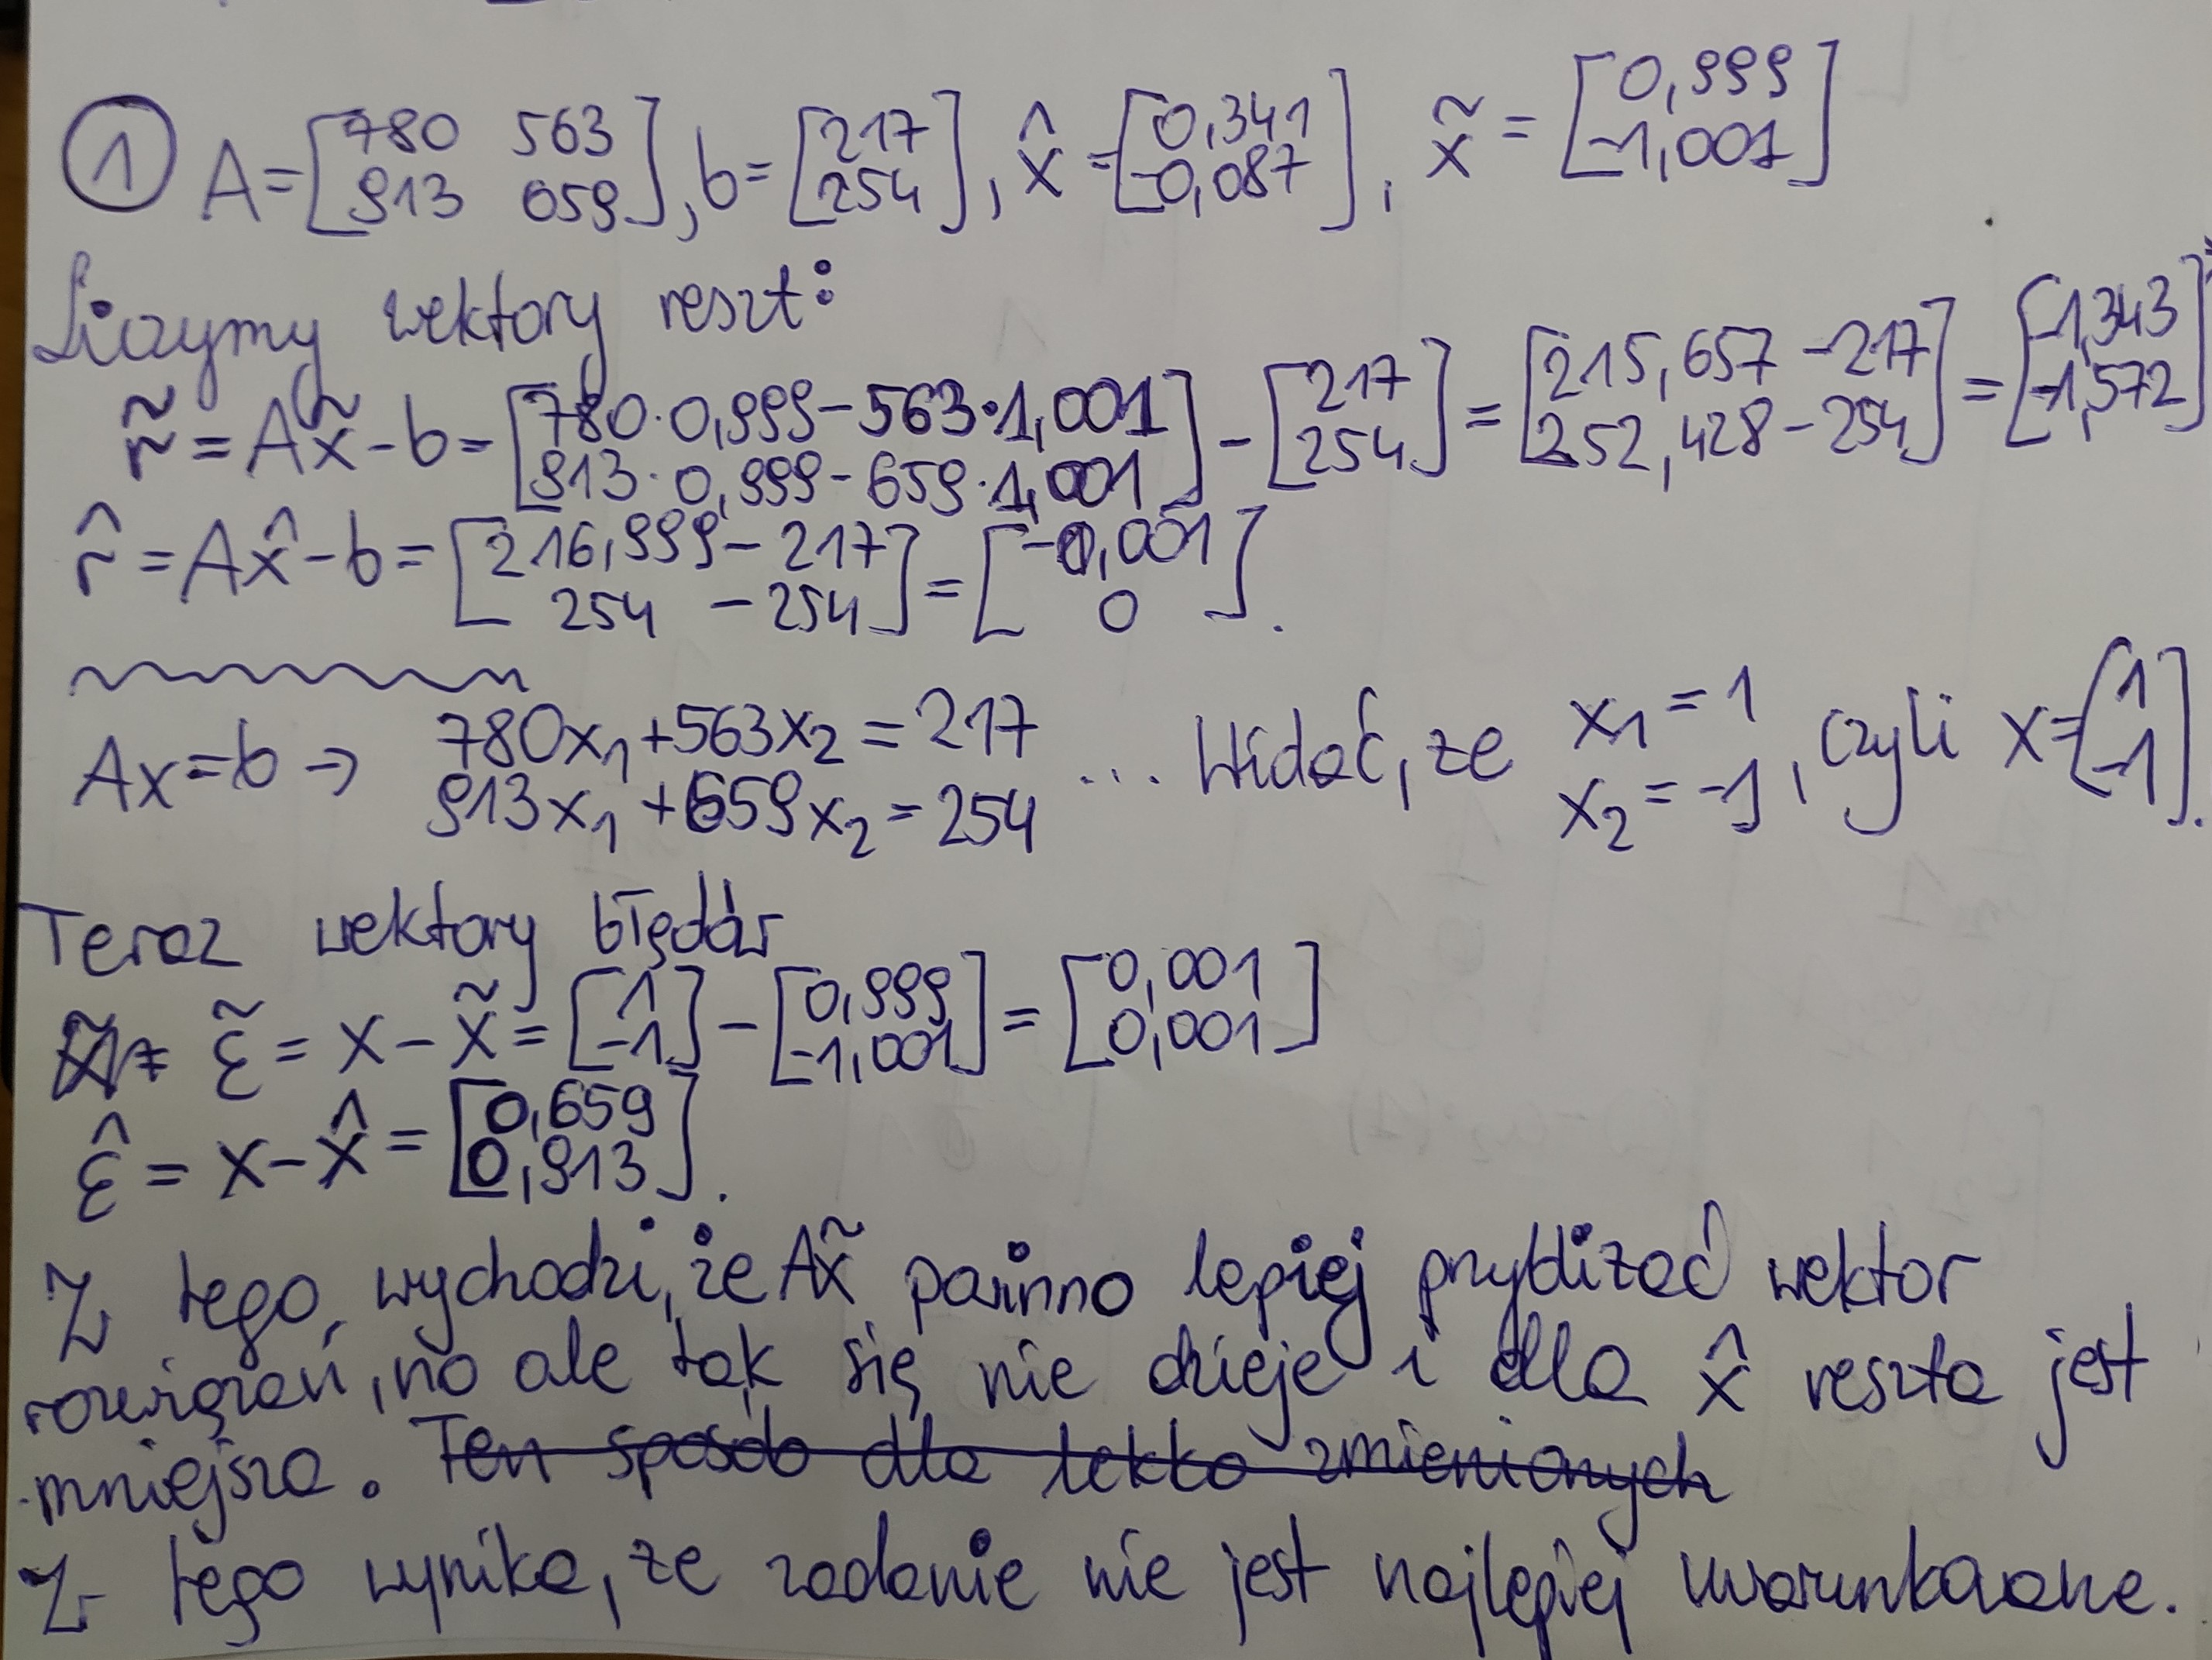 ① A = [780 563; 913 659], b = [217; 254], x̂ = [0,341; -0,087], x̃ = [0,999; -1,001]
Liczymy wektory reszt:
r̃ = Ax̃ - b = [780·0,999 - 563·1,001; 913·0,999 - 659·1,001] - [217; 254] = [215,657 - 217; 252,428 - 254] = [-1,343; -1,572]
r̂ = Ax̂ - b = [216,999 - 217; 254 - 254] = [-0,001; 0].
Ax = b → 780x₁ + 563x₂ = 217
913x₁ + 659x₂ = 254 ... Widać, że x₁ = 1
x₂ = -1, czyli x = [1; -1].
Teraz wektory błędów
ε̃ = x - x̃ = [1; -1] - [0,999; -1,001] = [0,001; 0,001]
ε̂ = x - x̂ = [0,659; 0,913].
Z tego, wychodzi, że Ax̃ powinno lepiej przybliżać wektor
rozwiązań, no ale tak się nie dzieje i dla x̂ reszta jest
mniejsza. Ten sposób dla lekko zmienionych
Z tego wynika, że zadanie nie jest najlepiej uwarunkowane.